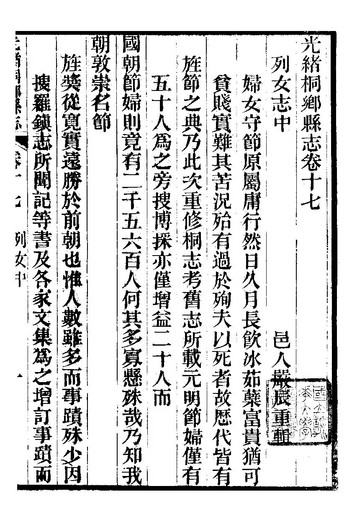 光緒桐鄉縣志卷十七
列女志中
邑人嚴辰重輯
婦女守節原屬庸行然日久月長飲冰茹蘗富貴猶可
貧賤實難其苦況殆有過於殉夫以死者故歷代皆有
旌節之典乃此次重修桐志考舊志所載元明節婦僅有
五十人為之旁搜博採亦僅增益二十人而
國朝節婦則竟有二千五六百人何其多寡懸殊哉乃知我
朝敦崇名節
旌獎從寬實遠勝於前朝也惟人數雖多而事蹟殊少因
搜羅鎮志所聞記等書及各家文集為之增訂事蹟而
卷十七
列女中
一